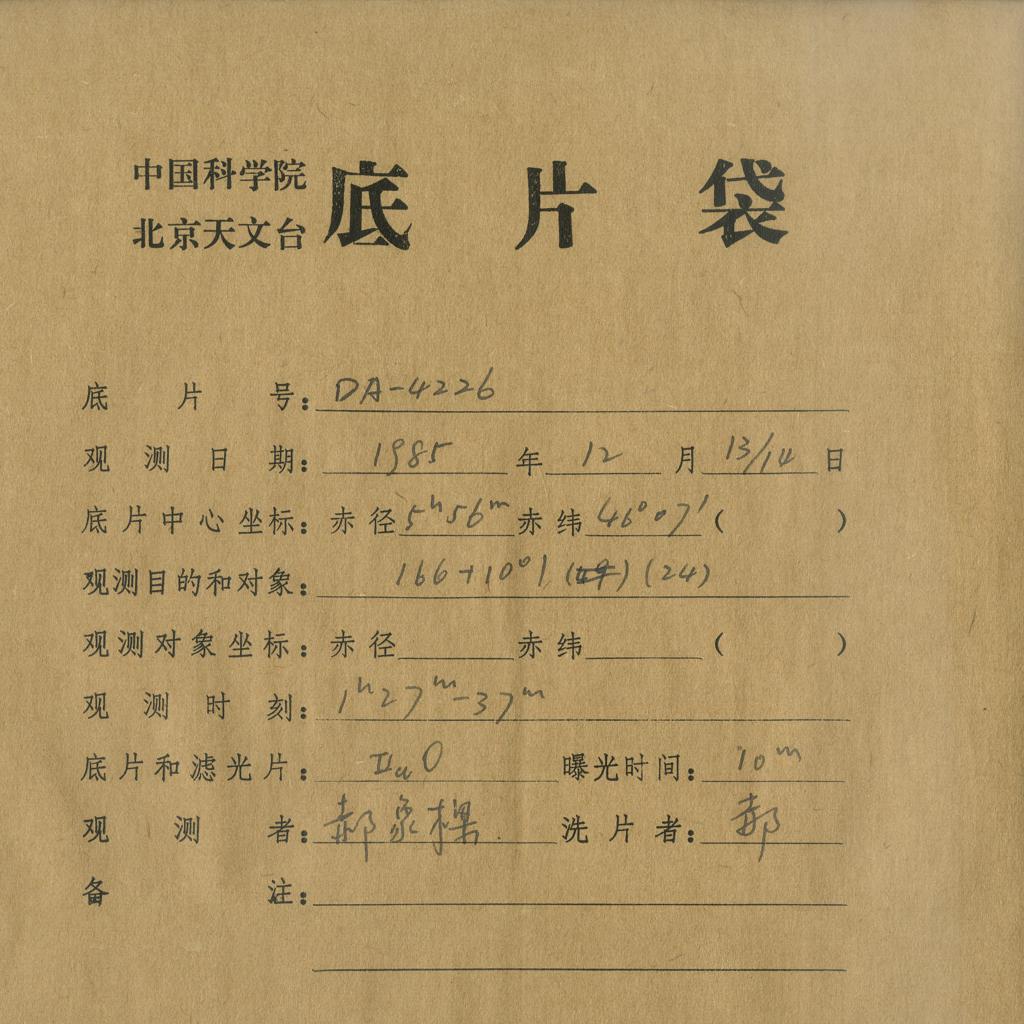 中国科学院
北京天文台 底片袋
底片号：DA-4226
观测日期：1985年12月13/14日
底片中心坐标：赤径5ʰ56ᵐ赤纬46°07′（ ）
观测目的和对象：166+10°1 ( ) (24)
观测对象坐标：赤径 赤纬 （ ）
观测时刻：1ʰ27ᵐ-37ᵐ
底片和滤光片：IIaO 曝光时间：10ᵐ
观测者：郝象樑 洗片者：郝
备注：